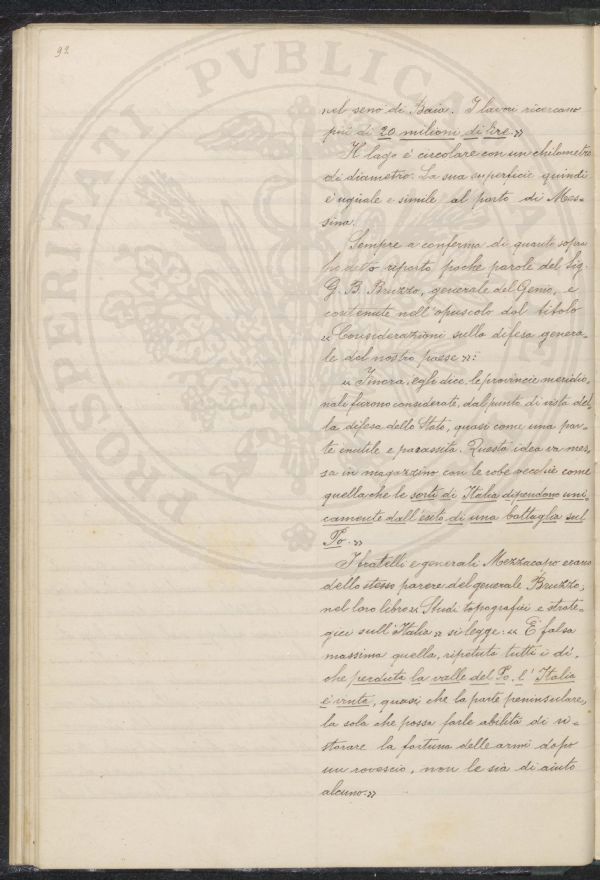 92
nel seno di Baia. I lavori ricercano
più di 20 milioni di lire.»
Il lago è circolare con un chilometro
di diametro. La sua superficie quindi
è uguale e simile al porto di Mes=
sina.
Sempre a conferma di quanto sopra
ho detto riporto poche parole del Sig.
G. B. Bruzzo, generale del Genio, e
contenute nell'opuscolo dal titolo
«Considerazioni sulla difesa genera=
le del nostro paese»:
«Finora, egli dice, le provincie meridio=
nali furono considerate, dal punto di vista del=
la difesa dello Stato, quasi come una par=
te inutile e parassita. Questa idea va mes=
sa in magazzino con le robe vecchie come
quella che le sorti di Italia dipendono uni=
camente dall'esito di una battaglia sul
Po.»
I fratelli e generali Mezzacapo erano
dello stesso parere del generale Bruzzo;
nel loro libro «Studi topografici e strate=
gici sull'Italia» si legge: «È falsa
massima quella, ripetuta tutti i dì,
che perduta la valle del Po, l'Italia
è vinta, quasi che la parte peninsulare,
la sola che possa farle abilità di ri=
storare la fortuna delle armi dopo
un rovescio, non le sia di aiuto
alcuno.»
PROSPERITATI PVBLICA